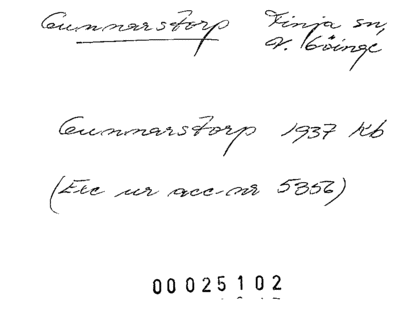 Gunnarstorp Finja sn,
V. Göinge
Gunnarstorp 1937 Kb
(Exc ur acc-nr 5356)
00025102